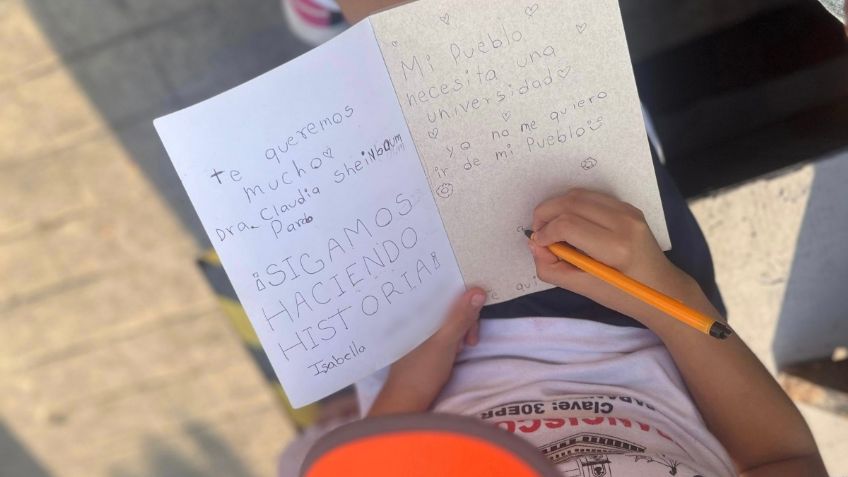 te queremos
mucho
Dra. Claudia Sheinbaum
Pardo
¡SIGAMOS
HACIENDO
HISTORIA!
Isabella
Mi Pueblo
necesita una
universidad
yo no me quiero
ir de mi Pueblo
e qui
Clave: 30EPR